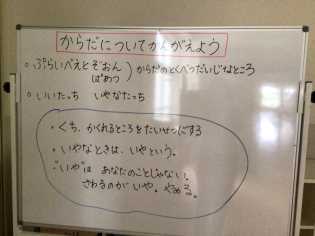 からだについてかんがえよう
○ ぷらいべえとぞおん
ぱあつ
) からだのとくべつだいじなところ
○ いいたっち いやなたっち
・くち、かくれるところをたいせつにする
・いやなときは、いやという。
・"いや"は あなたのことじゃない。
さわるのが いや。やめる。